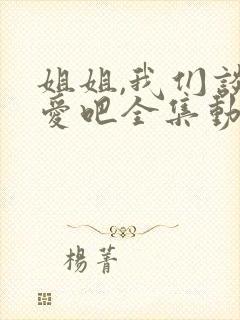 姐姐,我们谈
爱吧全集動
楊菁